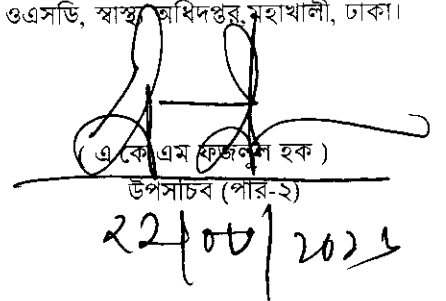 ওএসডি, স্বাস্থ্য অধিদপ্তর, মহাখালী, ঢাকা।
( এ কে এম ফজলুল হক )
উপসচিব (পার-২)